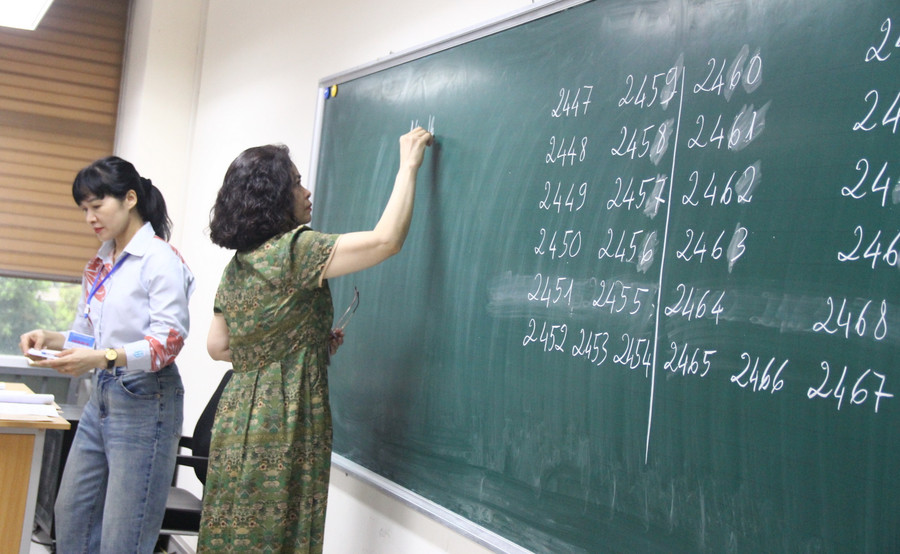 2447 2459 2460
2448 2458 2461
2449 2457 2462
2450 2456 2463 246
2451 2455 2464 2468
2452 2453 2454 2465 2466 2467